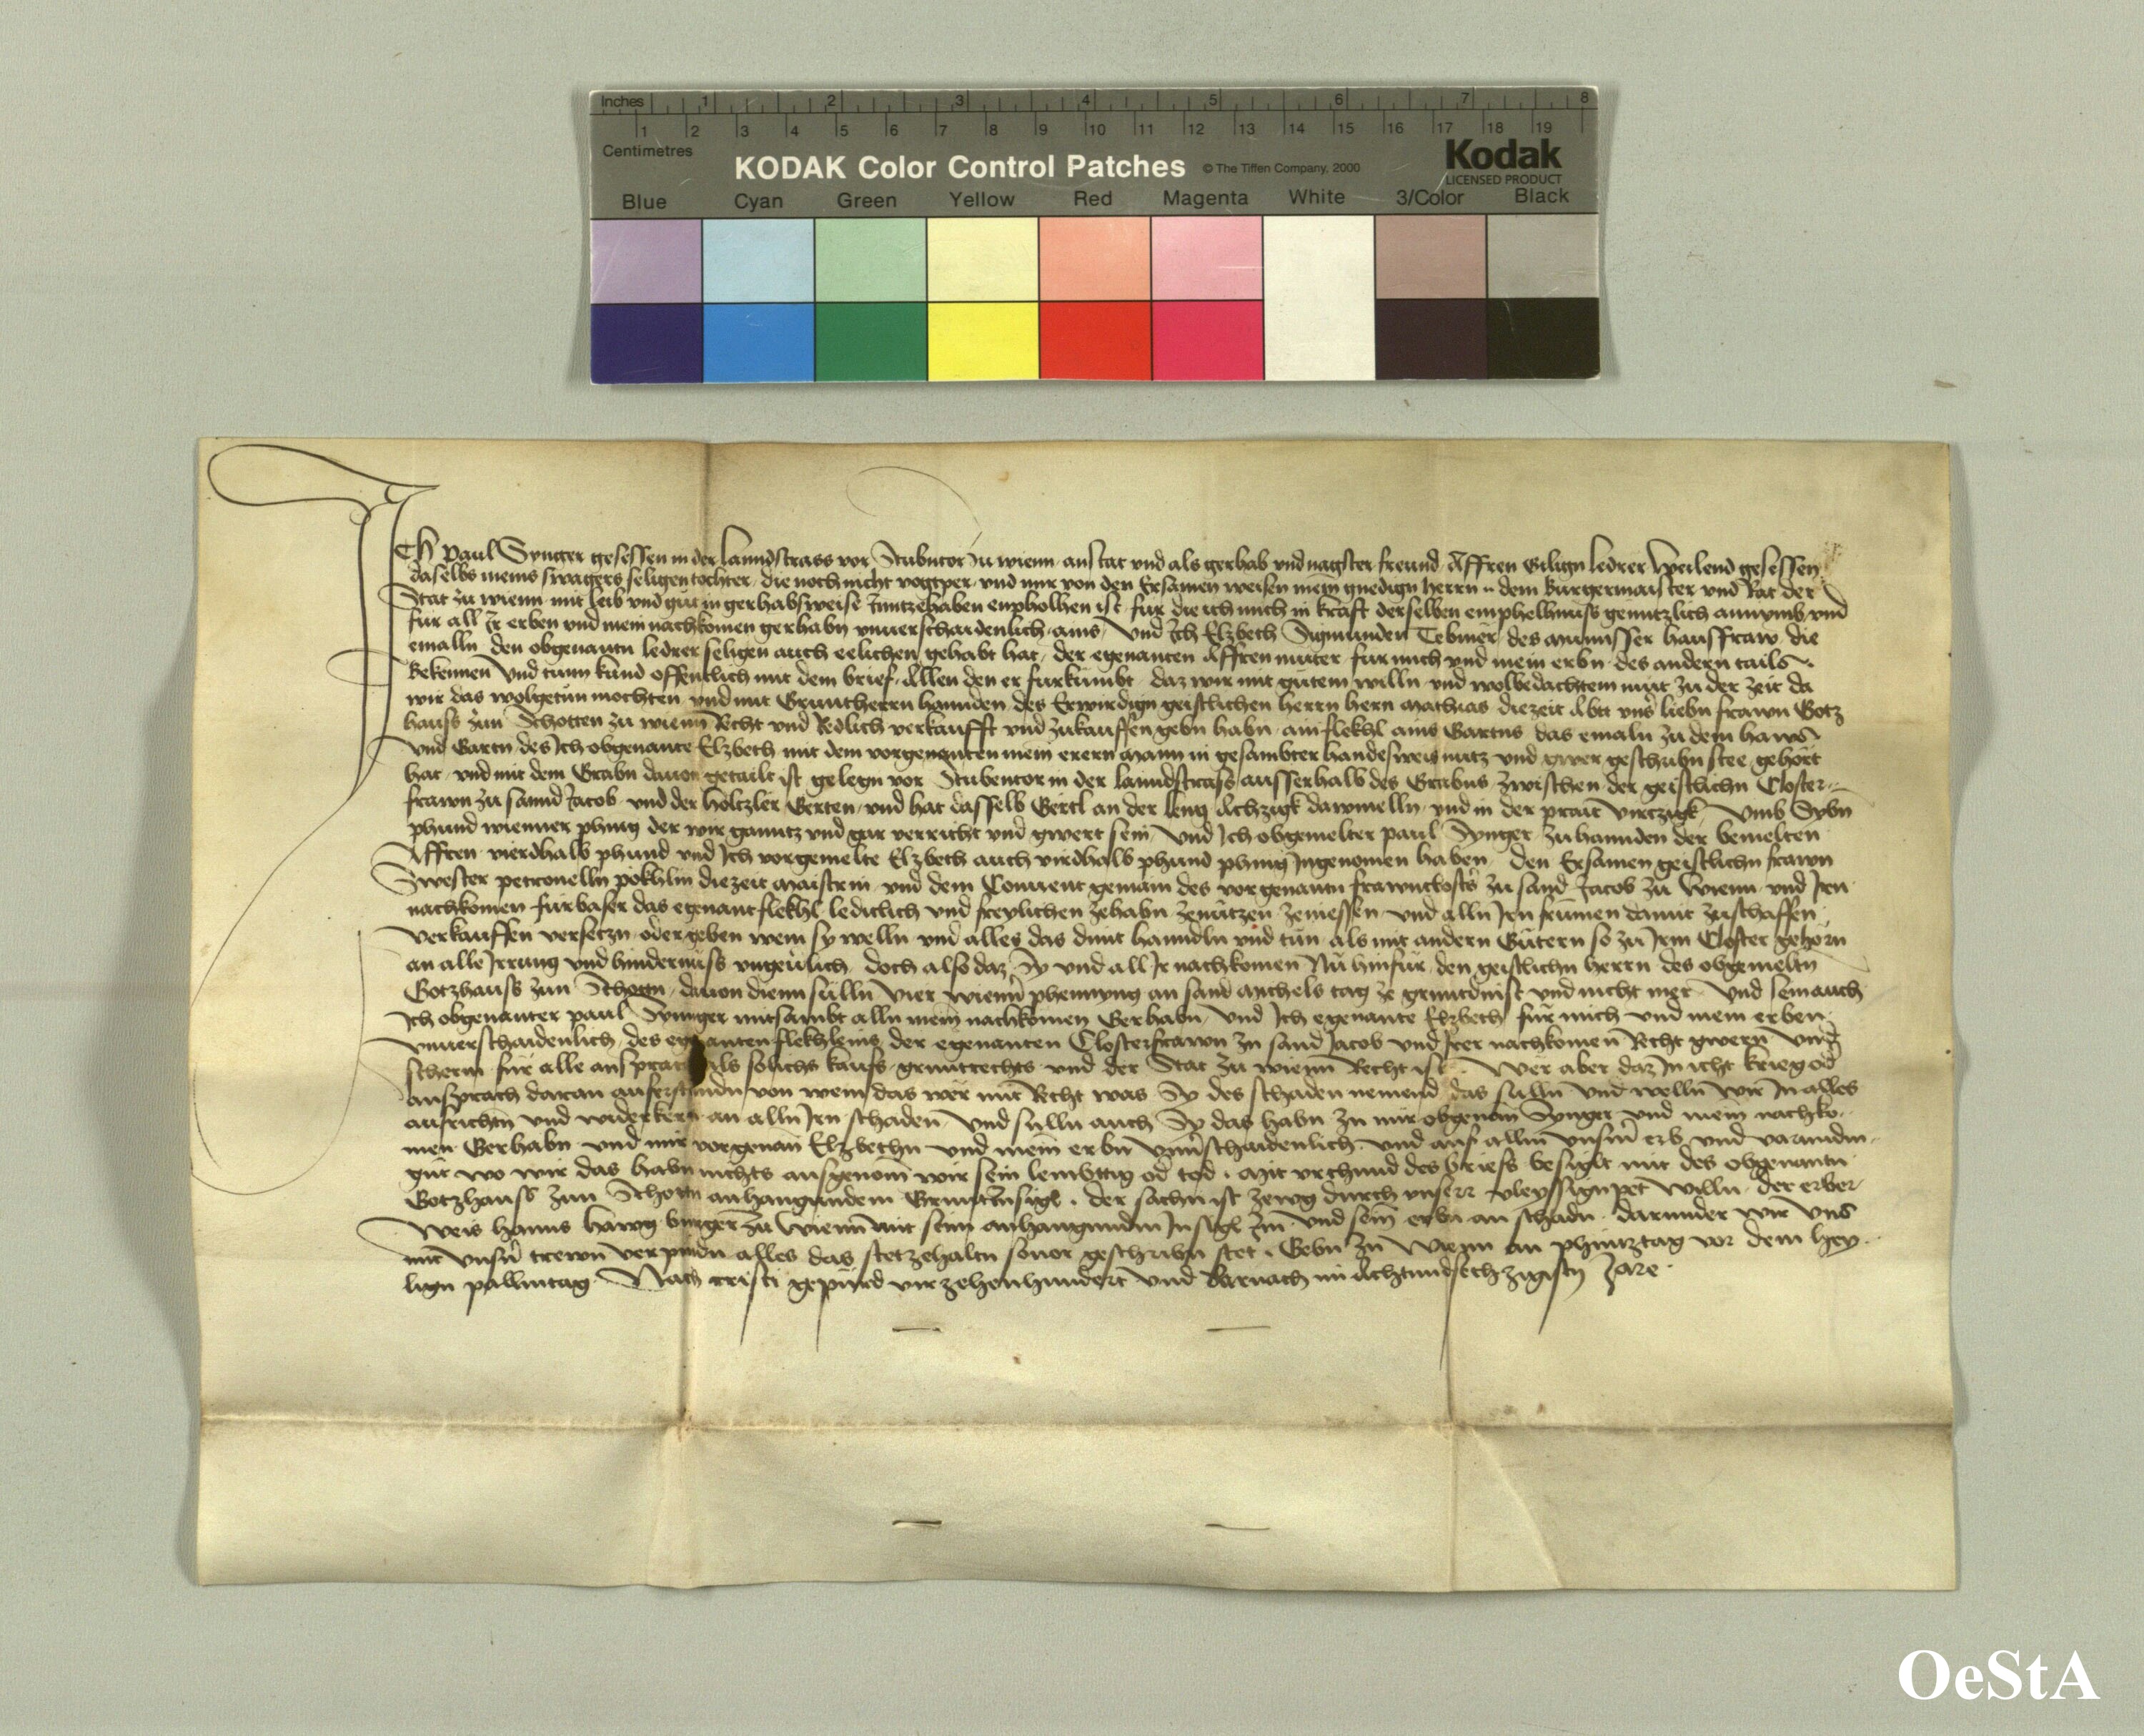 Inches 1 2 3 4 5 6 7 8
1 2 3 4 5 6 7 8 9 10 11 12 13 14 15 16 17 18 19
Centimetres
KODAK Color Control Patches © The Tiffen Company, 2000 Kodak
LICENSED PRODUCT
Blue Cyan Green Yellow Red Magenta White 3/Color Black
ICh paul Synger gesessen in der lanndstrass vor Stubntor zu wienn anstat und als gerhab und nagster freund Affren Gilign ledrer weilend gesessen
daselbs meins swagers seligen tochter die noch nicht vogtper und mir von den Ersamen weisen mein gnedign herrn dem Burgermaister und Rat der
Stat zu wienn mit leib und gut in gerhabsweise Inntzehaben enpholhen ist fur die ich mich in kraft derselben emphelhnuss genntzlich annymb und
fur all Ir erben und mein nachkomen gerhabn unverschaidenlich ains Und Ich Elzbeth Sigmunden hausfraw die
emalln den obgenantn ledrer seligen auch eelichen gehabt hat der egenanten Affren muter fur mich und mein erbn des andern tails
Bekennen Und tunn kund offenntlich mit dem brief Allen den er furkumbt daz wir mit gutem willn und wolbedachtem mut zu der zeit da
wir das wolgetun mochten und mit Grunntherrn hannden des Erwirdign geistlichen herrn hern Mathias diezeit Abtt uns liebn frawn Gotz
hauss zun Schotten zu wienn Recht und Redlich verkaufft und zukauffen gebn habn ain flekhl ains Gartns das emaln zu dem haws
und Gartn des Ich obgenante Elzbeth mit dem vorgenanten mein erern Mann in gesambter handesweis nutz und gwer geschribn stee gehört
hat und mit dem Grabn davon getailt ist gelegn vor Stubentor in der lanndstrass ausserhalb des Grabns zwischen der geistlichn Closter
frawn zu sannd Jacob und der holtzler Gerten und hat dasselb Gertl an der leng Achzigk dawmelln und in der prait virczigk Umb Sybn
phund wienner phnig der wir ganntz und gar verricht und gwert sein Und Ich obgemelter paul Synger zuhannden der bemelten
Affren vierdhalb phund und Ich vorgemelte Elzbeth auch virdhalb phund phnig Ingenomen haben den Ersamen geistlichn frawn
Swester petronelln pokhlin diezeit Maistrin und dem Convent gemain des vorgenantn frawnclosts zu sand Jacob zu Wienn und Irn
nachkomen furbaser das egenant flekhl ledichlich und freylichen zehabn zenutzen zeniessen und alln Irn frumen damit zuschaffen
verkauffen versetzn oder geben wem sy welln und alles das damit hanndln und tun als mit andern Gutern so zu Irm Closter gehörn
an alle Irrung und hindernuss ungevlich doch also daz Sy und all Ir nachkomen Nu hinfur den geistlichn herrn des obgemeltn
Gotzhauss zun Schottn davon dienn sulln Vier wiennr phennyng an sand Michels tag ze grunntdinst und nicht mer Und sein auch
Ich obgenanter paul Synnger mitsambt alln mein nachkomen Gerhabn Und Ich egenante Elzbeth fur mich und mein erben
unverschaidenlich des egenanten flekhleins der egenanten Closterfrawn zu sand Jacob und Irer nachkomen Recht gwern Und
scherm fur alle ansprach als solichs kaufs grunntrechts und der Stat zu wienn Recht ist Wer aber daz In icht krieg od
ansprach daran auferstundn von wem das wer mit Recht was Sy des schaden nemend das sulln und welln wir In alles
ausrichtn und widerkern an alln Irn schaden Und sulln auch Sy das habn zu mir obgenan Synger und mein nachko
men Gerhabn und mir vorgenan Elzbethn und mein erbn unverschaidenlich und auf allm unserm erb und varunden
gut wo wir das habn nichts ausgenom wir sein lembttig od tod Mit urchund des briefs besiglt mit des obgenantn
Gotzhauss zun Schottn anhangundem Gruntinsigl der sachn ist zewg durch unserr vleyssign pet willn der erber
weis hanns burger zu Wienn mit seim anhangundm Insigl Im und sein erbn an schadn darunder wir uns
mit unsern trewn verpindn alles das stetzehaltn sovor geschribn stet Gebn zu Wienn an phintztag vor dem hey
lign pallmtag Nach cristi gepurd virzehenhundert und darnach im Achtundsechzigistn Jare
OeStA